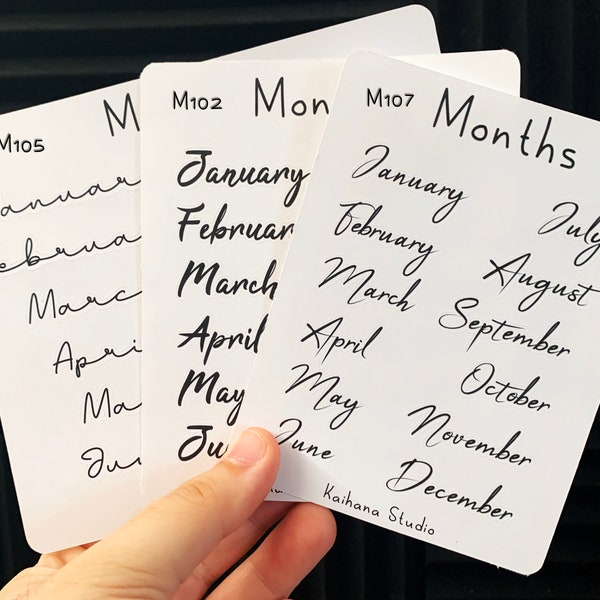 M105
M
anuar
ebrua
Marc
Apri
Ma
Ju
M102
Mon
January
Februar
March
April
May
Ju
M107
Months
January
February
March
April
May
June
July
August
September
October
November
December
Kaihana Studio